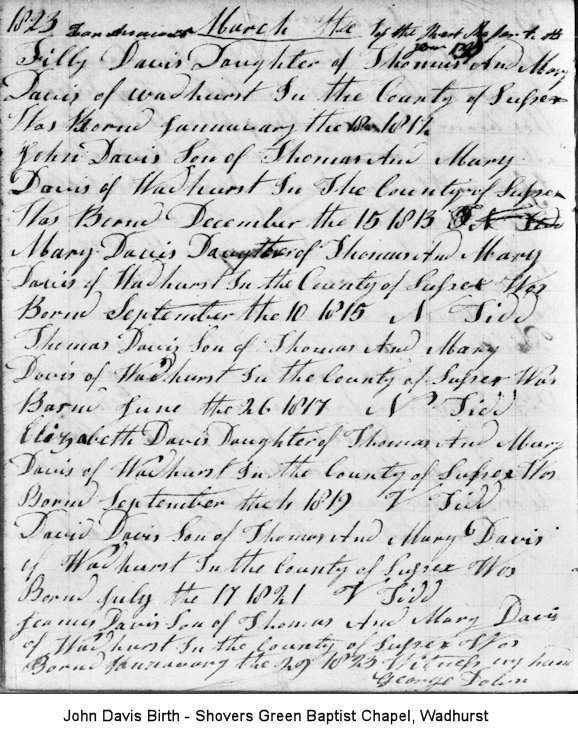 1823 March the by the
Filly Davis Daughter of Thomas And Mary
Davis of Wadhurst In the County of Sussex
Was Bornd Jannauary the 1812
John Davis Son of Thomas And Mary
Davis of Wadhurst In The County of Sussex
Was Bornd December the 15 1813
Mary Davis Daughter of Thomas And Mary
Davis of Wadhurst In the County of Sussex Was
Bornd September the 10 1815 N Tidd
Thomas Davis Son of Thomas And Mary
Davis of Wadhurst In the County of Sussex Was
Bornd June the 26 1817 N Tidd
Elizabeth Davis Daughter of Thomas And Mary
Davis of Wadhurst In the County of Sussex Was
Bornd September the 4 1819 V Tidd
David Davis Son of Thomas And Mary Davis
of Wadhurst In the County of Sussex Was
Bornd July the 17 1821 V Tidd
Jeames Davis Son of Thomas And Mary Davis
of Wadhurst In the County of Sussex Was
Bornd Jannauary the 29 1823 Witness my hand
George
John Davis Birth - Shovers Green Baptist Chapel, Wadhurst